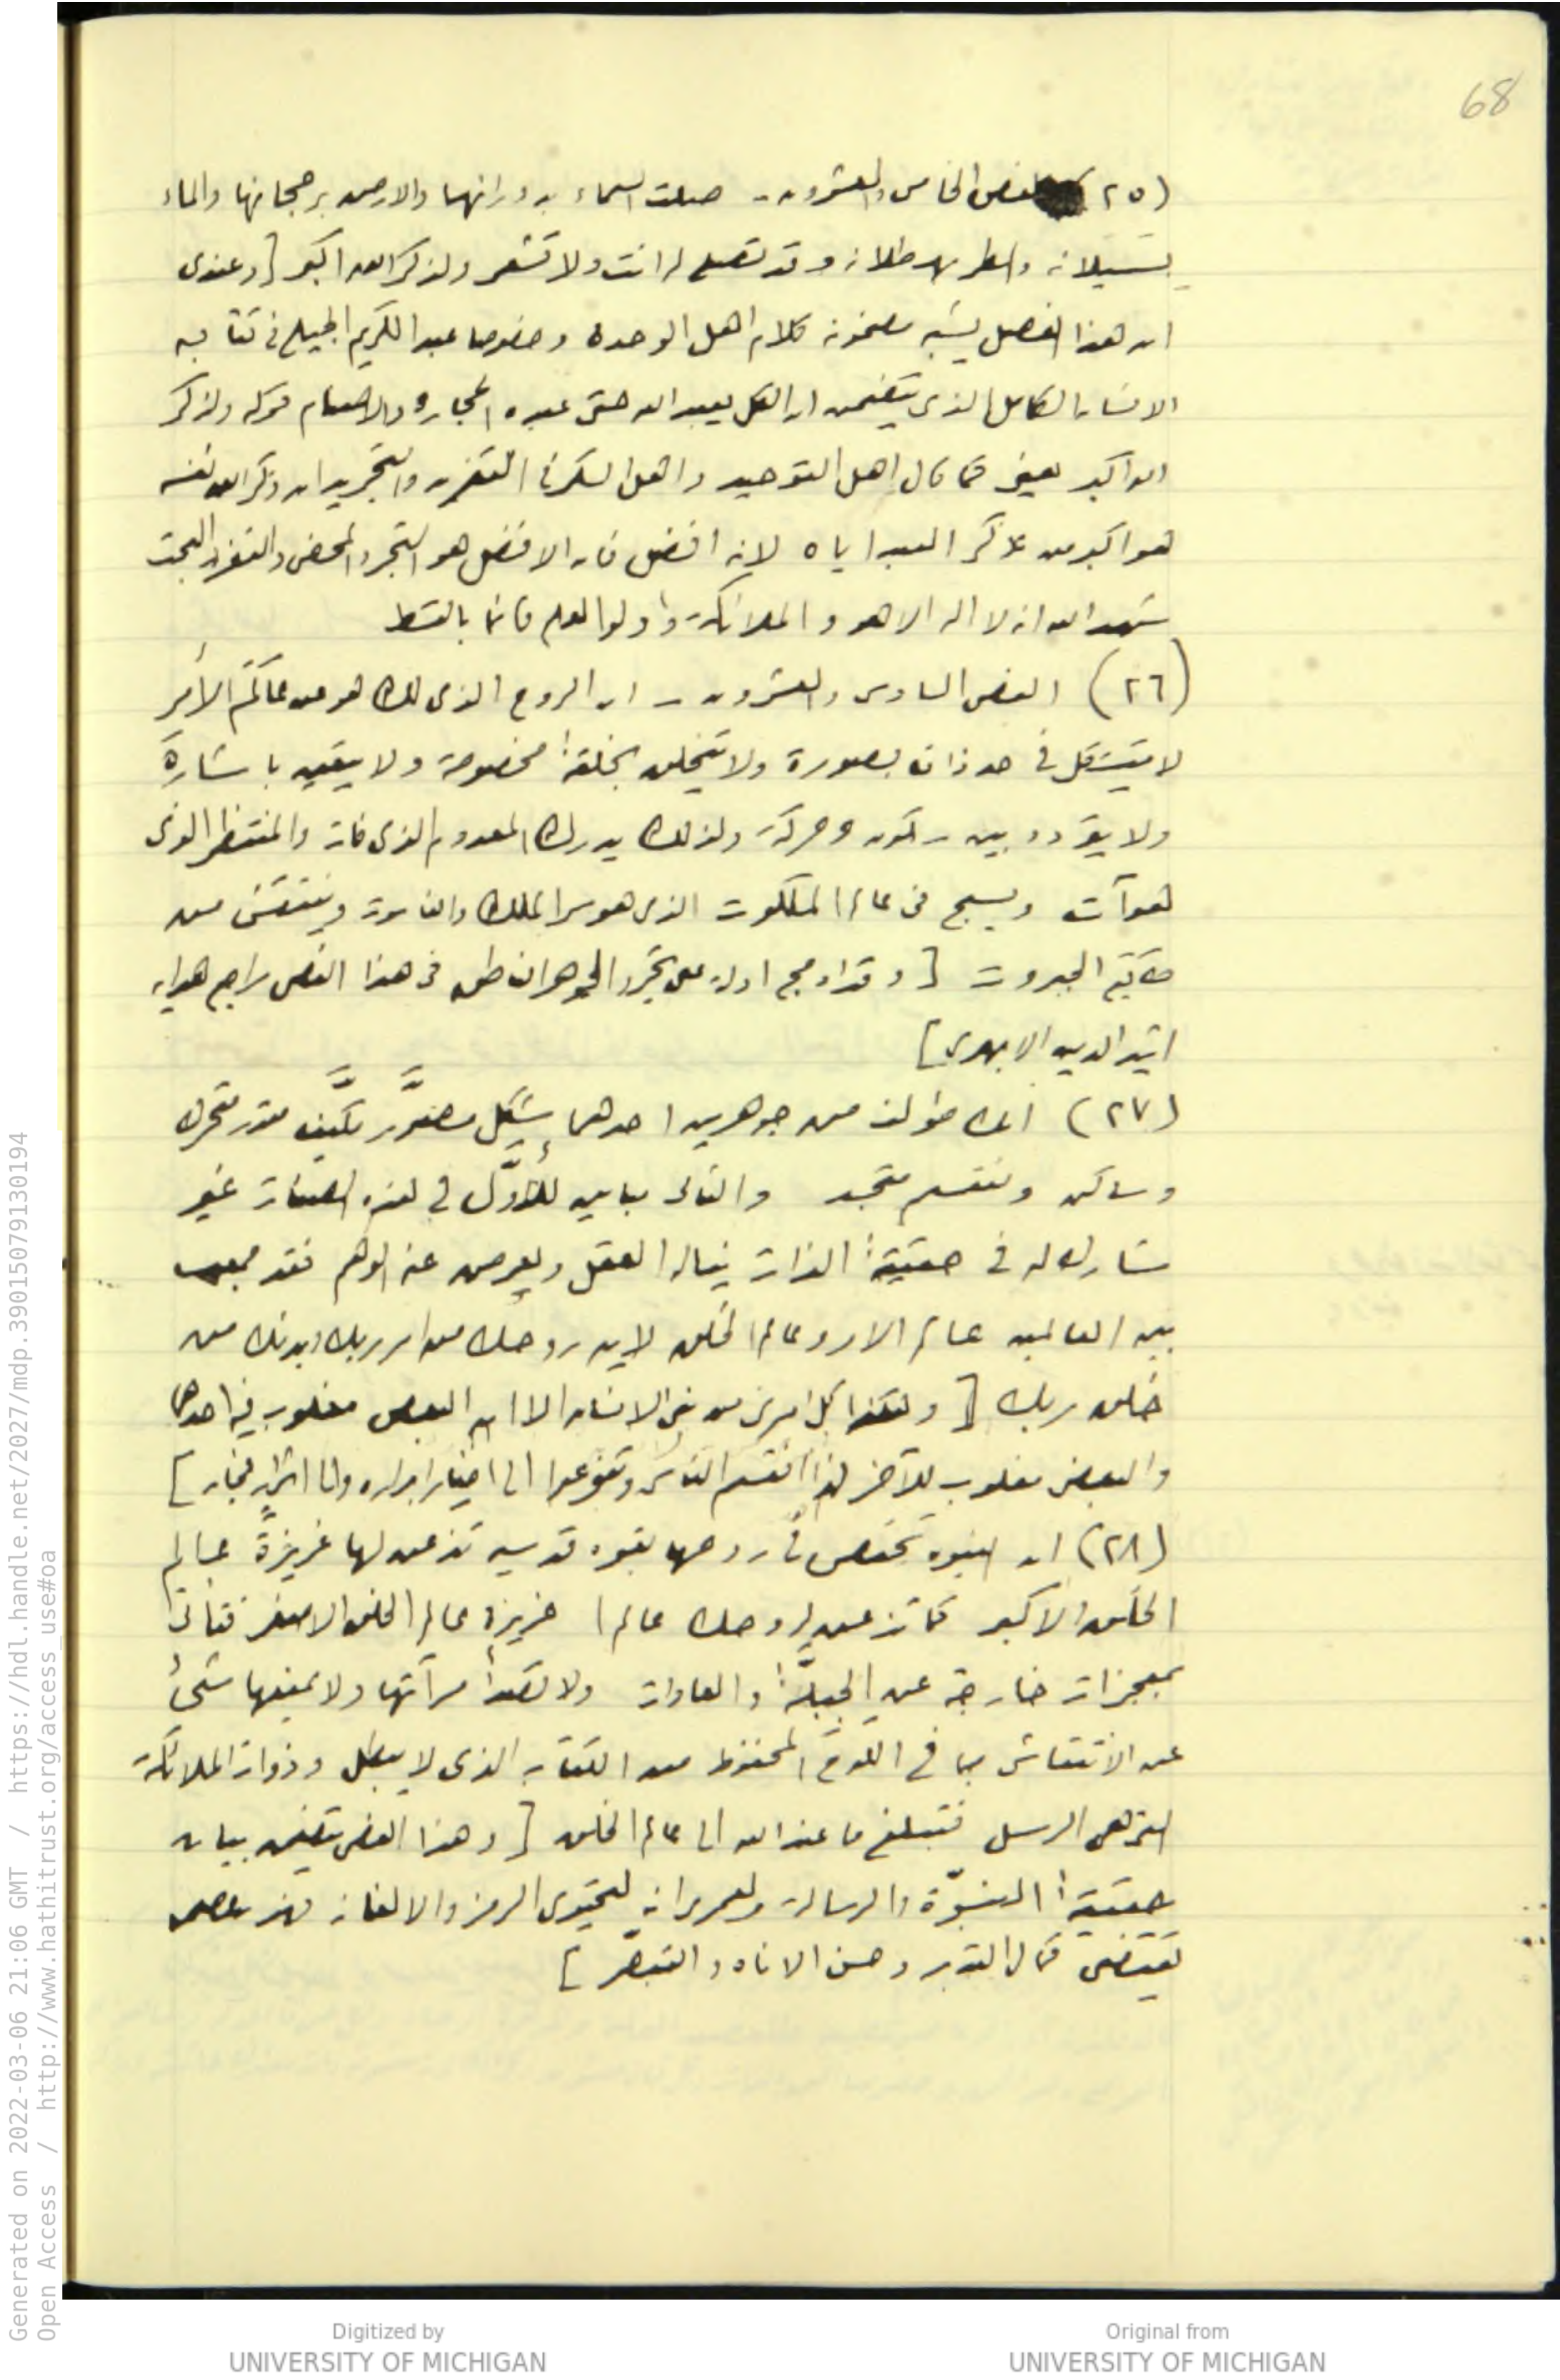 68
(٢٥) الفص الخامس والعشرون - صلت السماء بدورانها والارض برجحانها والماء
بسيلانه والمطر بهطلانه وقد تصلي له انت ولا تشعر ولذكر الله اكبر [وعندي
ان هذا الفصل يشبه مضمونه كلام اهل الوحدة وخصوصا عبد الكريم الجيلي في كتابه
الانسان الكامل الذي يتضمن ان الكل يعبد الله حتى عبدة الحجارة والاصنام قوله ولذكر
الله اكبر يعني كما قال اهل التوحيد واهل السكر في التفريد والتجريد ان ذكر الله نفسه
هو اكبر من ذكر العبد اياه لانه افضل فان الافضل هو التجرد المحض والتفرد البحت
شهد الله انه لا اله الا هو والملائكة واولوا العلم قائما بالقسط
(٢٦) الفص السادس والعشرون - ان الروح الذي لك هو من عالَم الأمر
لا يتشكل في حد ذاته بصورة ولا يتخلق بخلقة مخصوصة ولا يتقيد باشارة
ولا يتردد بين سكون وحركة ولذلك يدرك المعدوم الذي فات والمنتظر الذي
هو آت ويسبح في عالم الملكوت الذي هو سر الملك والناسوت وينتقش من
خاتم الجبروت [وقد ادمج ادلة على تجرد الجوهر الناطق في هذا الفص راجع هداية
اثير الدين الابهري]
(٢٧) انك مؤلف من جوهرين احدهما مشكّل مصوَّر مكيَّف مقدر متحرك
وساكن ومنقسم متجسد والثاني مباين للأوَّل في هذه الصفات غير
مشارك له في حقيقة الذات يناله العقل ويعرض عنه الوهم فقد جمعت
بين العالمين عالم الامر وعالم الخلق لان روحك من امر ربك وبدنك من
خلق ربك [وهكذا كل امرئ من بني الانسان الا ان البعض مغلوب فيه احدهما
والبعض مغلوب للآخر لذا انقسم الناس وتنوعوا الى اخيار ابرار والى اشرار فجار]
(٢٨) ان النبوة تختص في روحها بقوة قدسية تذعن لها غريزة عالم
الخلق الاكبر كما تذعن لروحك عالما غريزة عالم الخلق الاصغر فتأتي
بمعجزات خارجة عن الجبلَّة والعادات ولا تصدأ مرآتها ولا يمنعها شئ
عن الانتقاش بما في اللوح المحفوظ من الكتاب الذي لا يبطل وذوات الملائكة
التي هي الرسل فتبلغ ما عند الله الى عالم الخلق [وهذا الفص يتضمن بيان
حقيقة النبوّة والرسالة ولعمري انه ليحتوي الرمز والالغاز
تقتضي كمال التدبر وحسن الاناة والتبصّر]
Generated on 2022-03-06 21:06 GMT / https://hdl.handle.net/2027/mdp.39015079130194
Open Access / http://www.hathitrust.org/access_use#oa
Digitized by
UNIVERSITY OF MICHIGAN
Original from
UNIVERSITY OF MICHIGAN